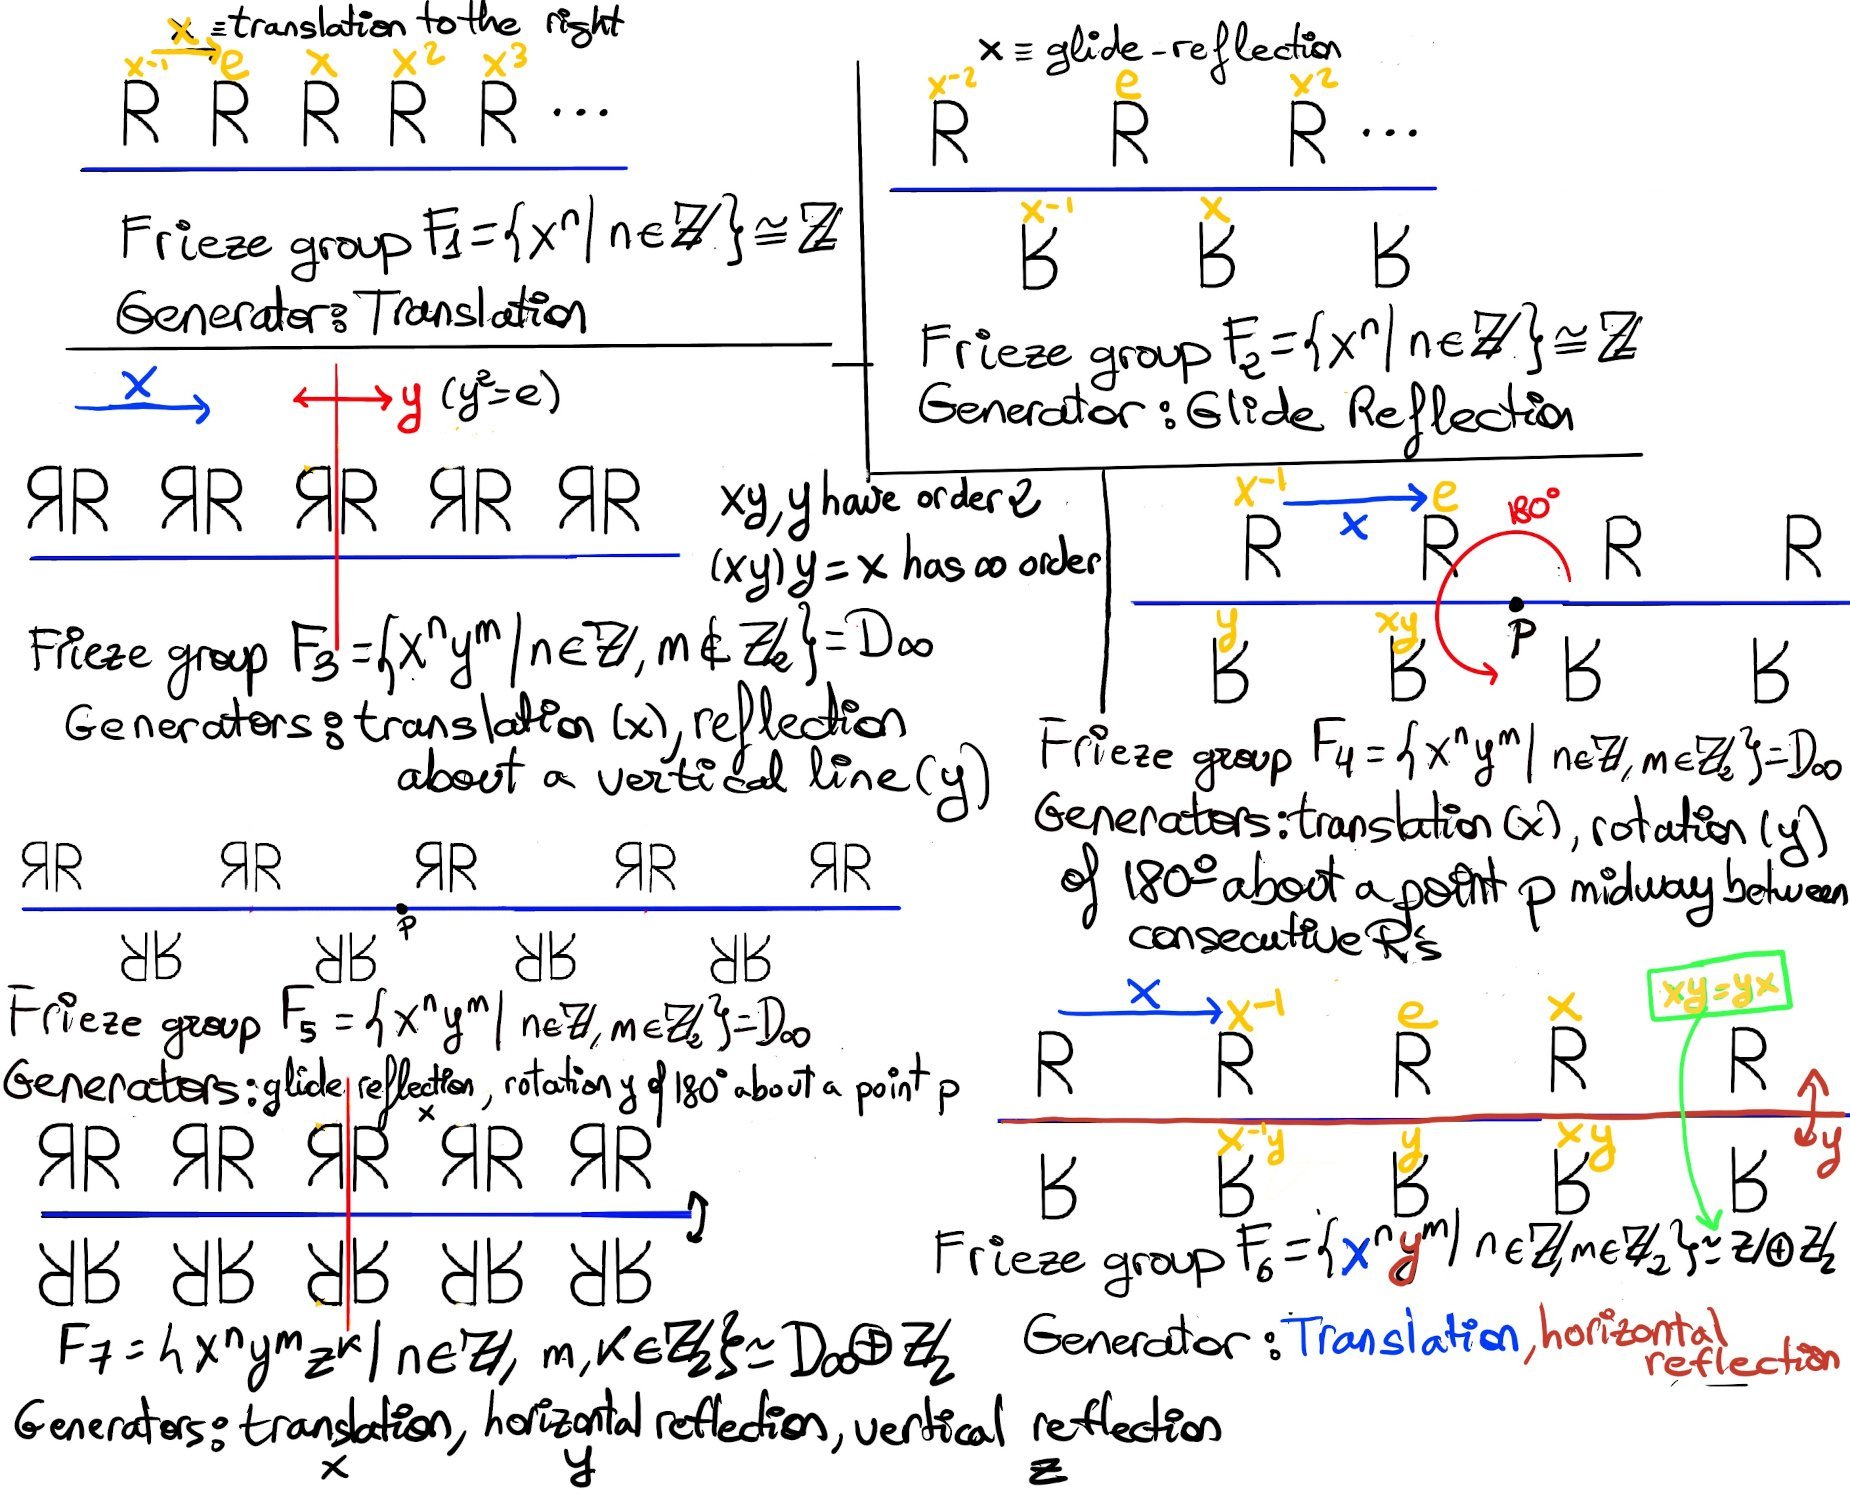 x ≡ translation to the right
x⁻¹ e x x² x³
R R R R R ...
Frieze group F₁ = {xⁿ | n ∈ ℤ} ≅ ℤ
Generator: Translation
x ≡ glide-reflection
x⁻² e x²
R R R ...
x⁻¹ x
R R R
Frieze group F₂ = {xⁿ | n ∈ ℤ} ≅ ℤ
Generator: Glide Reflection
x y (y²=e)
RR RR RR RR RR
xy, y have order 2
(xy)y = x has ∞ order
Frieze group F₃ = {xⁿyᵐ | n ∈ ℤ, m ∉ ℤ₂} = D∞
Generators: translation (x), reflection
about a vertical line (y)
x⁻¹ x e 180°
R R R R
y xy P
R R R R
Frieze group F₄ = {xⁿyᵐ | n∈ℤ, m∈ℤ₂} = D∞
Generators: translation (x), rotation (y)
of 180° about a point p midway between
consecutive R's
RR RR RR RR RR
P
RR RR RR RR
Frieze group F₅ = {xⁿyᵐ | n∈ℤ, m∈ℤ₂} = D∞
Generators: glide reflection, rotation y of 180° about a point p
x
x x⁻¹ e x xy=yx
R R R R R
x⁻¹y y xy y
R R R R R
Frieze group F₆ = {xⁿyᵐ | n∈ℤ, m∈ℤ₂} ≃ ℤ⊕ℤ₂
Generator: Translation, horizontal
reflection
RR RR RR RR RR
RR RR RR RR RR
F₇ = {xⁿyᵐzᵏ | n∈ℤ, m,k∈ℤ₂} ≃ D∞⊕ℤ₂
Generators: translation, horizontal reflection, vertical reflection
x y z